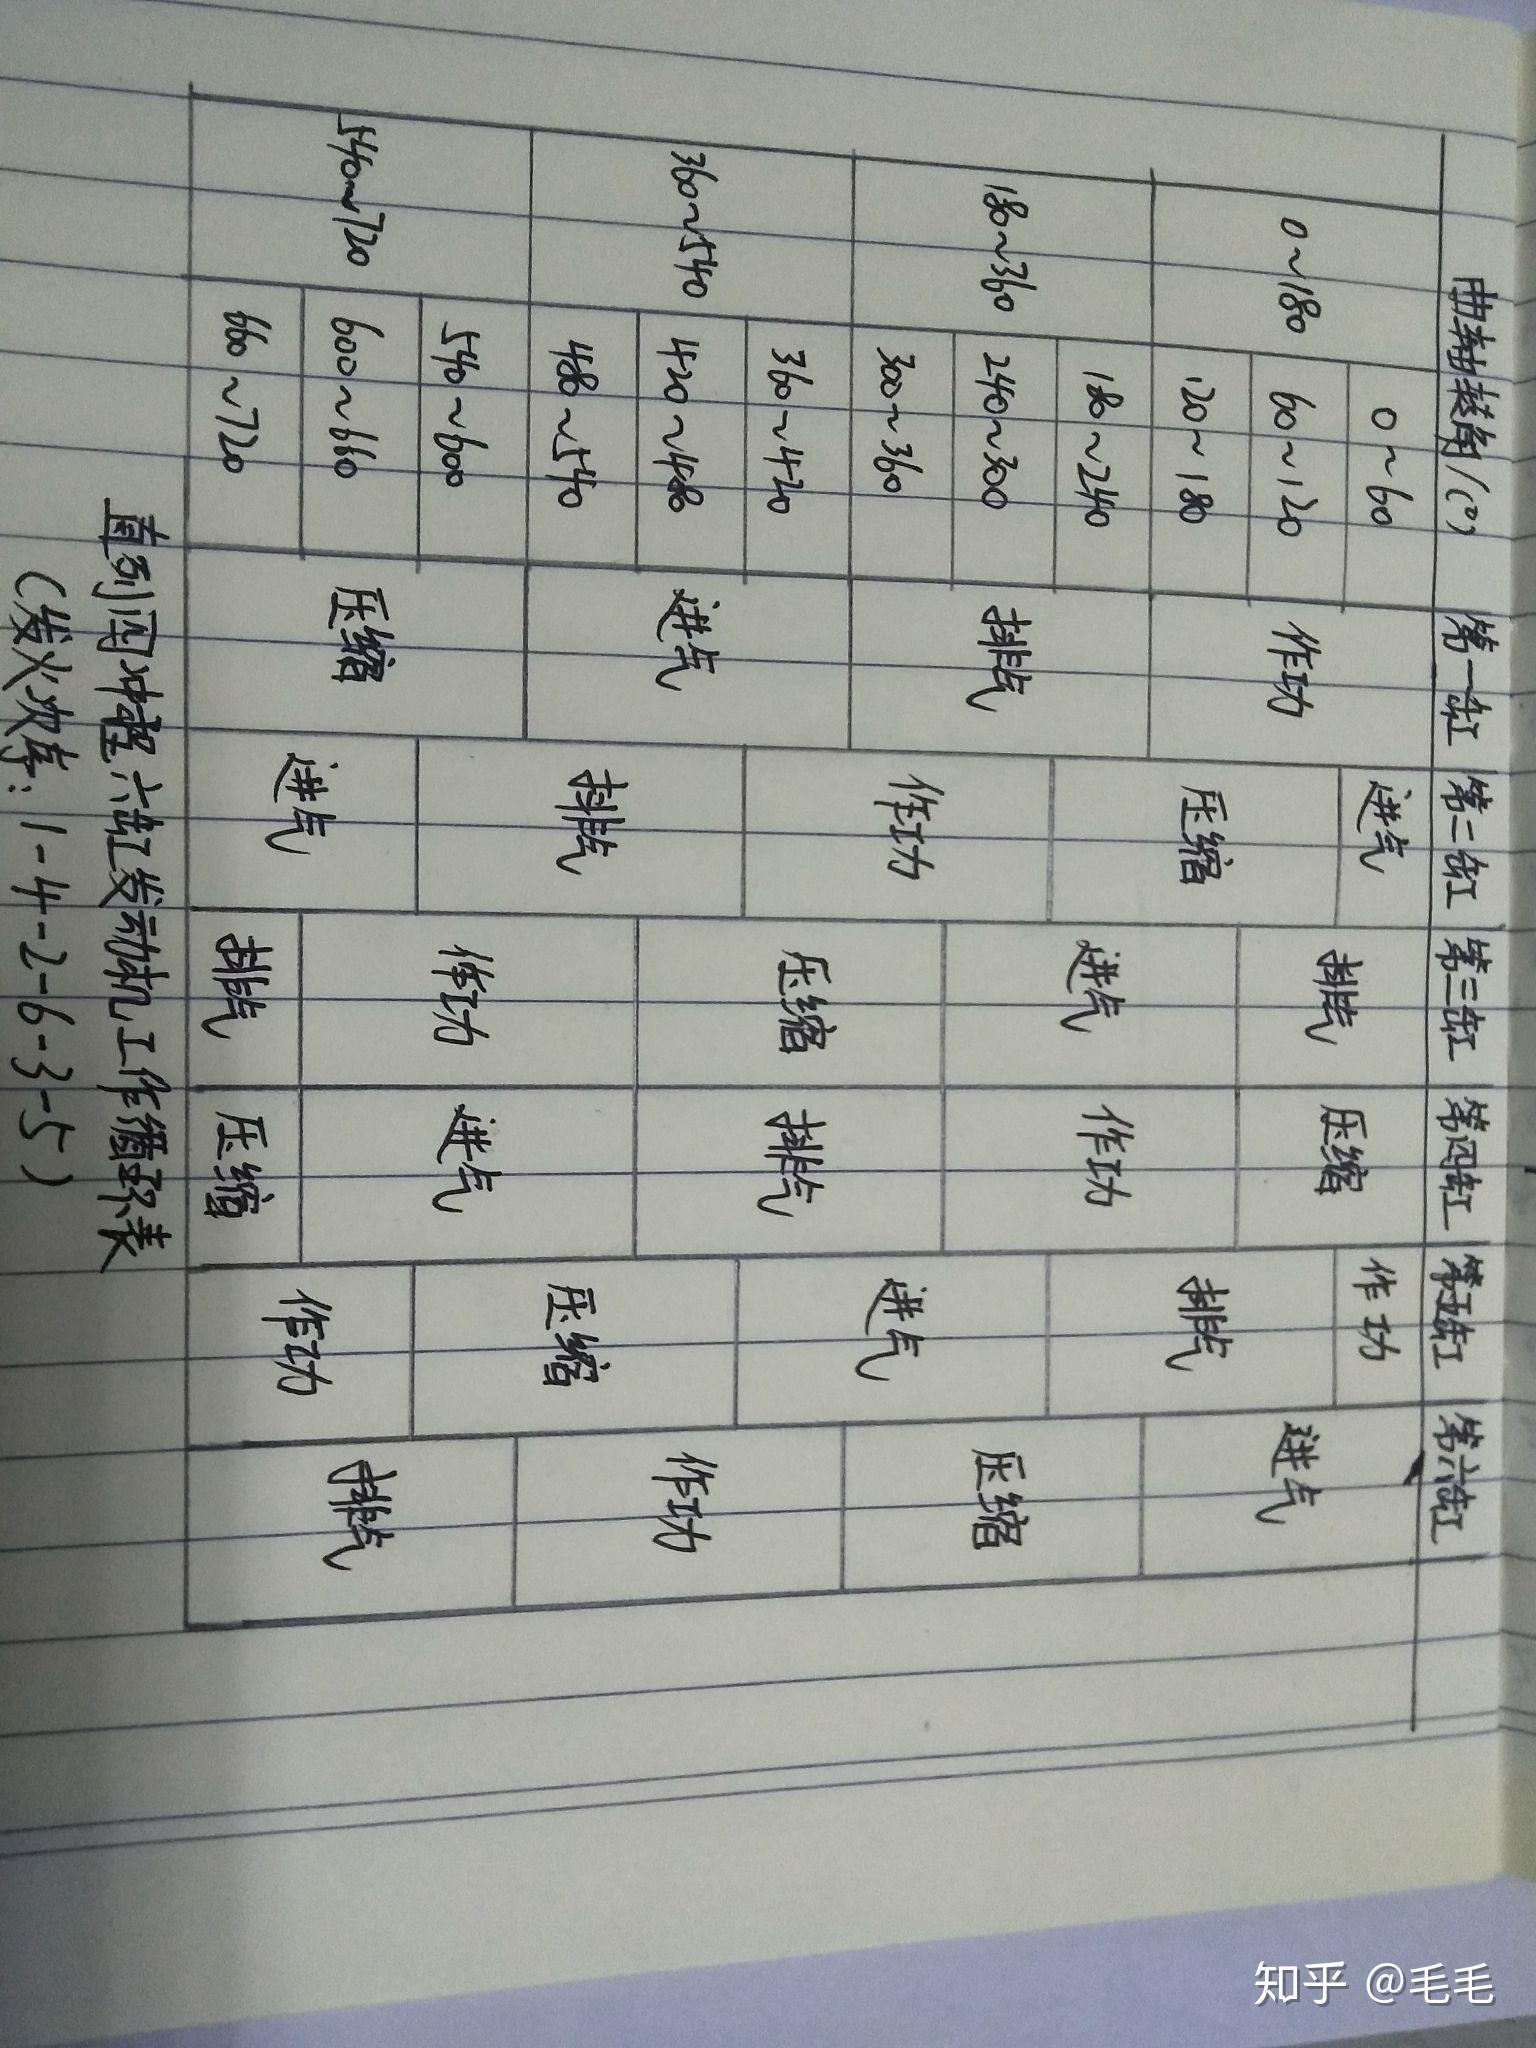 曲轴转角/(°) 第一缸 第二缸 第三缸 第四缸 第五缸 第六缸
0~180 0~60 作功 进气 排气 压缩 作功 进气
60~120 压缩 排气
120~180 进气 作功
180~360 180~240 排气 压缩
240~300 作功 进气
300~360 压缩 排气
360~540 360~420 进气 作功
420~480 排气 压缩
480~540 作功 进气
540~720 540~600 压缩 排气
600~660 进气 作功
660~720 排气 压缩
直列四冲程六缸发动机工作循环表
(发火次序:1-4-2-6-3-5)
知乎 @毛毛